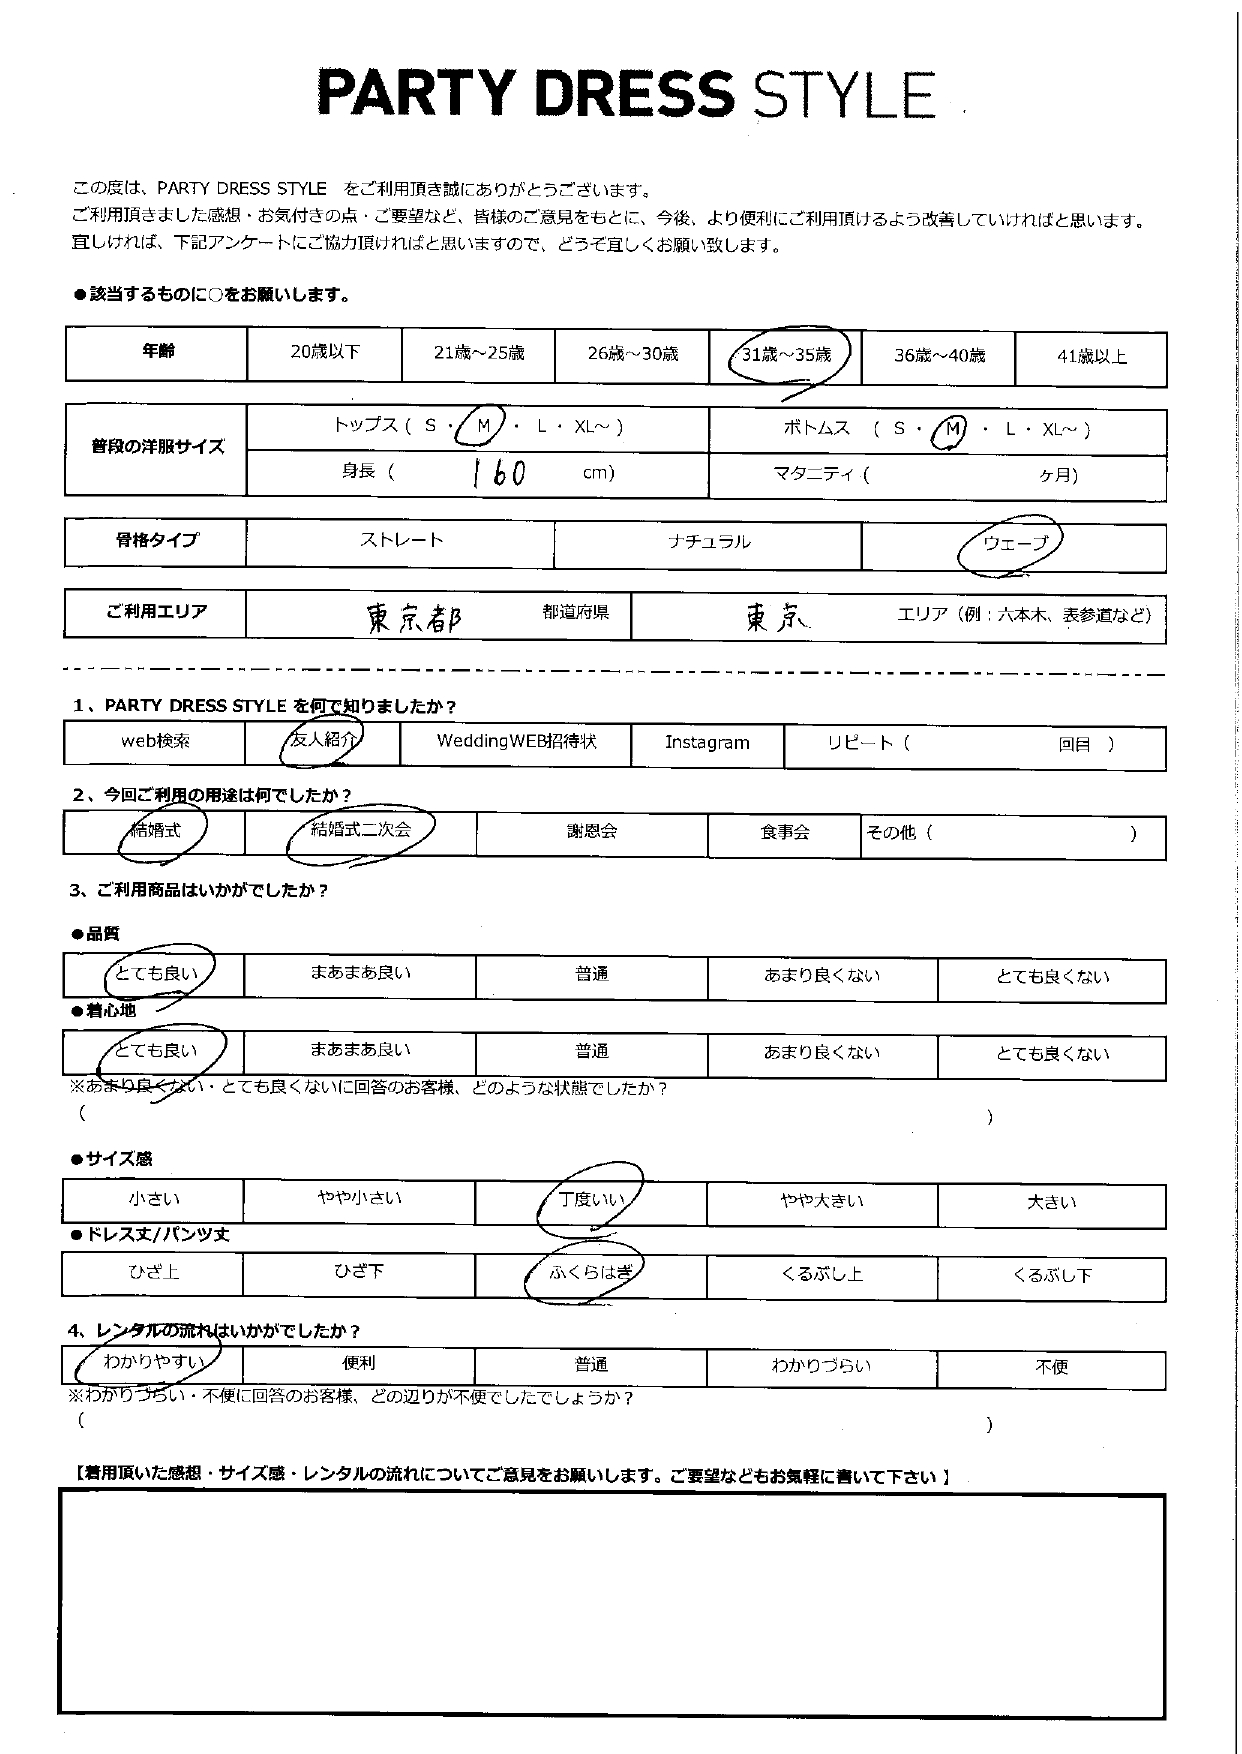 PARTY DRESS STYLE
この度は、PARTY DRESS STYLE　をご利用頂き誠にありがとうございます。
ご利用頂きました感想・お気付きの点・ご要望など、皆様のご意見をもとに、今後、より便利にご利用頂けるよう改善していければと思います。
宜しければ、下記アンケートにご協力頂ければと思いますので、どうぞ宜しくお願い致します。
●該当するものに○をお願いします。
年齢 20歳以下 21歳～25歳 26歳～30歳 31歳～35歳 36歳～40歳 41歳以上
普段の洋服サイズ
トップス ( S ・ M ・ L ・ XL～ ) ボトムス ( S ・ M ・ L ・ XL～ )
身長 ( 160 cm) マタニティ ( ヶ月)
骨格タイプ ストレート ナチュラル ウェーブ
ご利用エリア 東京都 都道府県 東京 エリア（例：六本木、表参道など）
1、PARTY DRESS STYLE を何で知りましたか？
web検索 友人紹介 WeddingWEB招待状 Instagram リピート ( 回目 )
2、今回ご利用の用途は何でしたか？
結婚式 結婚式二次会 謝恩会 食事会 その他 ( )
3、ご利用商品はいかがでしたか？
●品質
とても良い まあまあ良い 普通 あまり良くない とても良くない
●着心地
とても良い まあまあ良い 普通 あまり良くない とても良くない
※あまり良くない・とても良くないに回答のお客様、どのような状態でしたか？
( )
●サイズ感
小さい やや小さい 丁度いい やや大きい 大きい
●ドレス丈/パンツ丈
ひざ上 ひざ下 ふくらはぎ くるぶし上 くるぶし下
4、レンタルの流れはいかがでしたか？
わかりやすい 便利 普通 わかりづらい 不便
※わかりづらい・不便に回答のお客様、どの辺りが不便でしたでしょうか？
( )
【着用頂いた感想・サイズ感・レンタルの流れについてご意見をお願いします。ご要望などもお気軽に書いて下さい 】